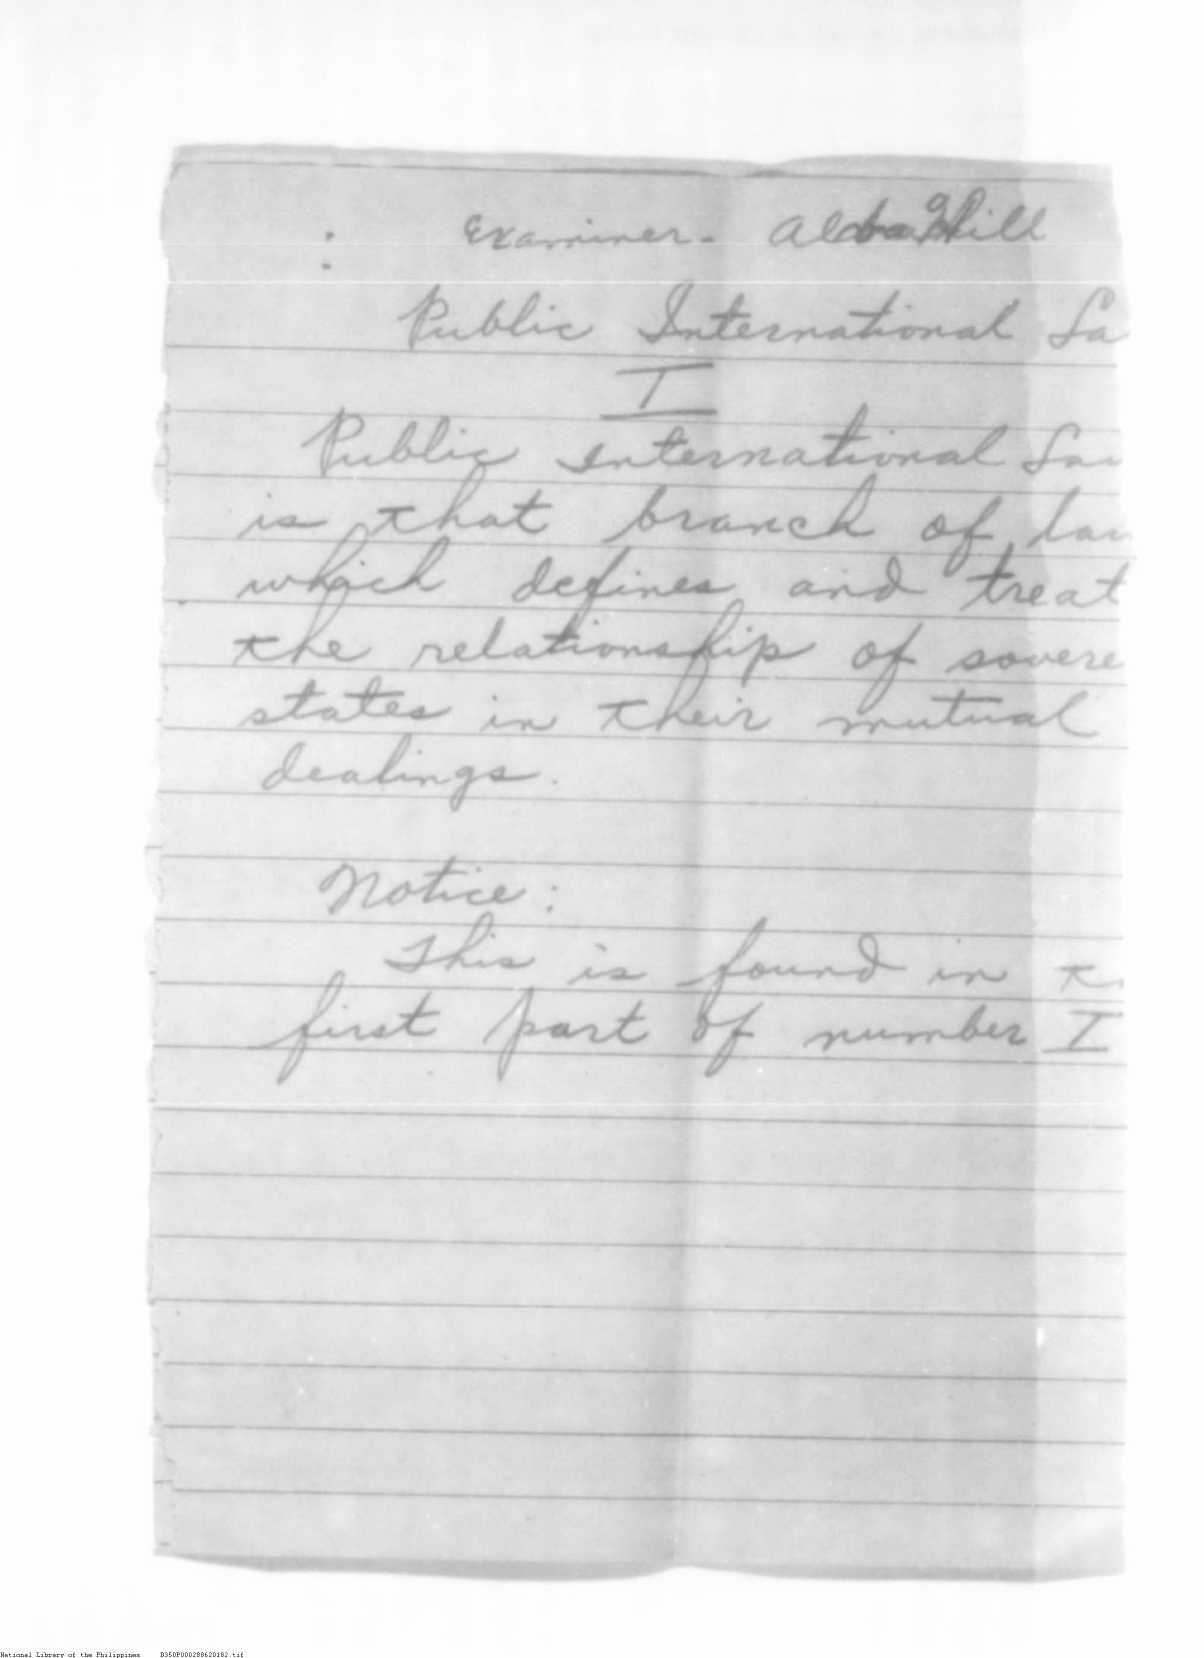 Examiner - Alba Hill
Public International La
I
Public International Law
is that branch of law
which defines and treat
the relationship of sovere
states in their mutual
dealings.
Notice:
This is found in
first part of number I
National Library of the Philippines B350P000288620182.tif